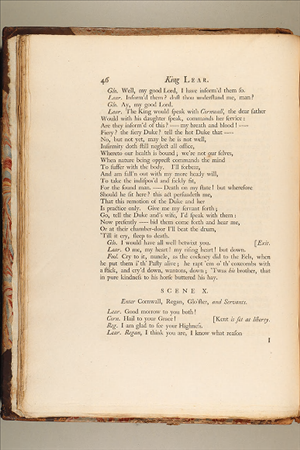 46 King LEAR.
Glo. Well, my good Lord, I have inform'd them so.
Lear. Inform'd them? dost thou understand me, man?
Glo. Ay, my good Lord.
Lear. The King would speak with Cornwall, the dear father
Would with his daughter speak, commands her service:
Are they inform'd of this? — my breath and blood! —
Fiery? the fiery Duke? tell the hot Duke that —
No, but not yet, may be he is not well,
Infirmity doth still neglect all office,
Whereto our health is bound; we're not our selves,
When nature being opprest commands the mind
To suffer with the body. I'll forbear,
And am fall'n out with my more heady will,
To take the indispos'd and sickly fit,
For the sound man. — Death on my state! but wherefore
Should he sit here? this act persuadeth me,
That this remotion of the Duke and her
Is practice only. Give me my servant forth;
Go, tell the Duke and's wife, I'd speak with them:
Now presently — bid them come forth and hear me,
Or at their chamber-door I'll beat the drum,
'Till it cry, sleep to death.
Glo. I would have all well betwixt you. [Exit.
Lear. O me, my heart! my rising heart! but down.
Fool. Cry to it, nuncle, as the cockney did to the Eels, when
he put them i' th' Pasty alive; he rapt 'em o' th' coxcombs with
a stick, and cry'd down, wantons, down; 'Twas his brother, that
in pure kindness to his horse buttered his hay.
SCENE X.
Enter Cornwall, Regan, Glo'ster, and Servants.
Lear. Good morrow to you both!
Corn. Hail to your Grace! [Kent is set at liberty.
Reg. I am glad to see your Highness.
Lear. Regan, I think you are, I know what reason
I